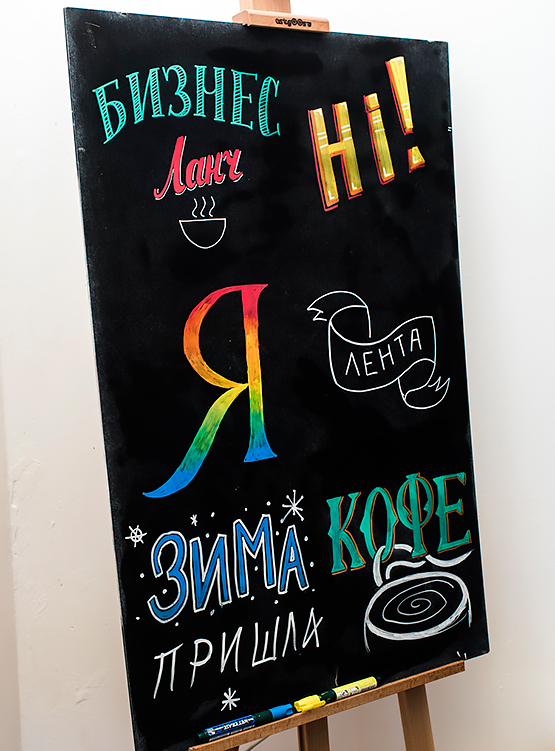 БИЗНЕС
Ланч
Hi!
Я
ЛЕНТА
ЗИМА
ПРИШЛА
КОФЕ